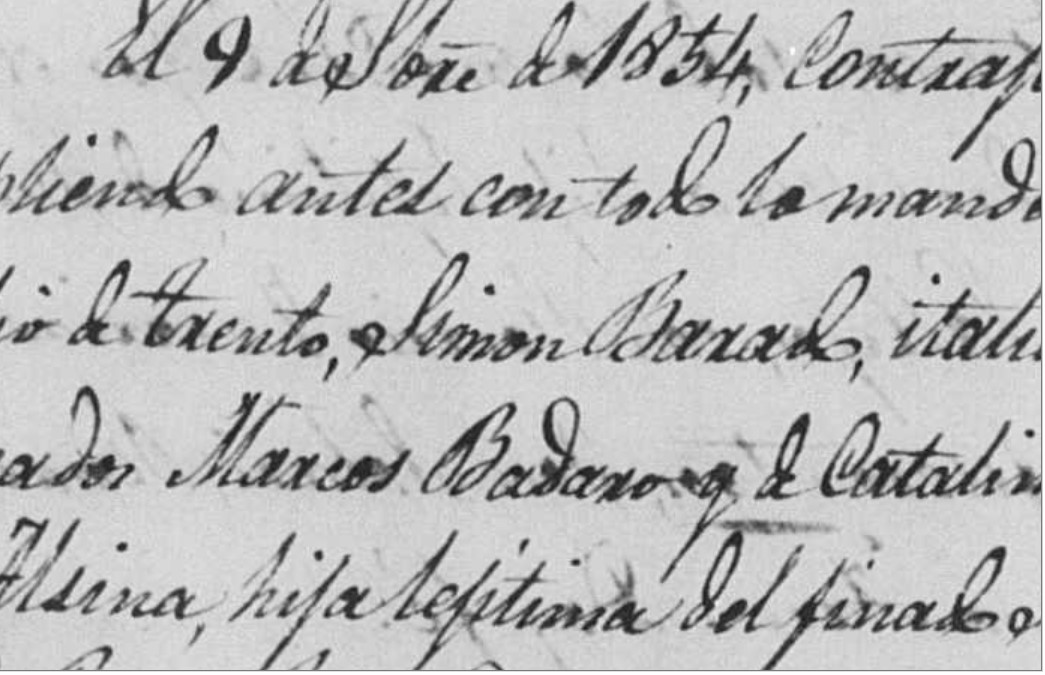 El 9 de Sbre de 1854, Contraj
pliendo antes con todo lo mando
io de trento, Simon Barado, itali
ados Marcos Badaro y de Catalin
Alsina, hija lejitima del finado